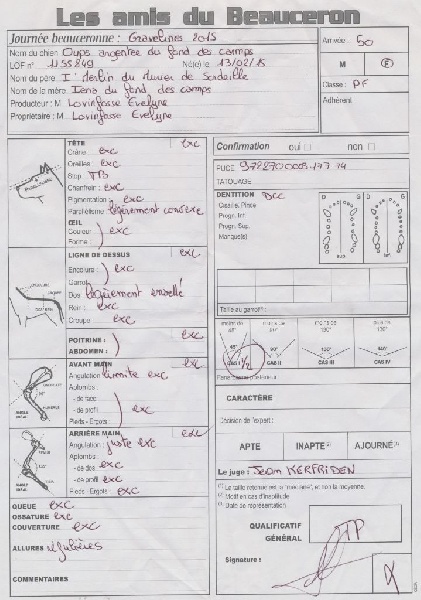 Les amis du Beauceron
Journée beauceronne : Gravelines 2015
Armée : 50
Nom du chien Oups argentée du fond des camps
LOF n° 1155849 Né(e) le : 13/02/15
M E
Nom du père I' Merlin du Murier de Sordeille
Classe : PF
Nom de la mère Iena du fond des camps
Adhérent
Producteur : M Lovinfosse Evelyne
Propriétaire : M Lovinfosse Evelyne
TÊTE exc
Crâne : exc
Oreilles exc
Stop TB
Chanfrein : exc
Pigmentation exc
Parallélisme légèrement convexe
ŒIL
Couleur exc
Forme
LIGNE DE DESSUS exc
Encolure : exc
Garrot
Dos légèrement ensellé
Rein : exc
Croupe exc
POITRINE : exc
ABDOMEN :
AVANT MAIN exc
Angulation limite exc
Aplombs :
- de face
- de profil exc
Pieds - Ergots :
ARRIÈRE MAIN exc
Angulation juste exc
Aplombs :
- de dos exc
- de profil exc
Pieds - Ergots exc
QUEUE exc
OSSATURE exc
COUVERTURE exc
ALLURES régulières
COMMENTAIRES
Confirmation oui non
PUCE
TATOUAGE
DENTITION
Progn. Inf.
Progn. Sup.
Manque(s)
Taille au garrot
CAS II CAS III CAS IV
CARACTÈRE
Décision de l'expert :
APTE INAPTE (2) AJOURNÉ (3)
Le juge : Jean KERFRIDEN
(2) Motif en cas d'inaptitude
(3) Date de représentation
QUALIFICATIF
GÉNÉRAL
Signature :